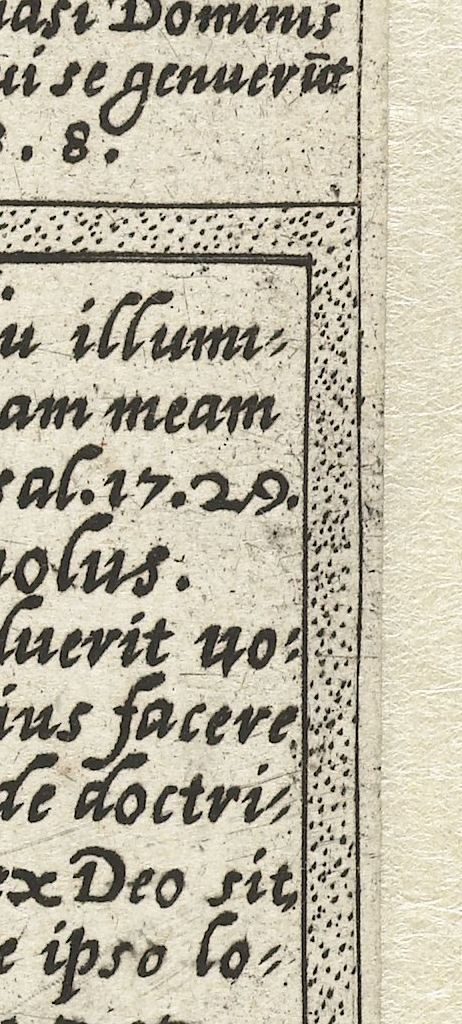 Dominus
ui se genuerūt
8.
illumi-
am meam
sal. 17. 29.
uolus.
luerit uo:
ius facere
de doctri-
ex Deo sit,
e ipso lo-